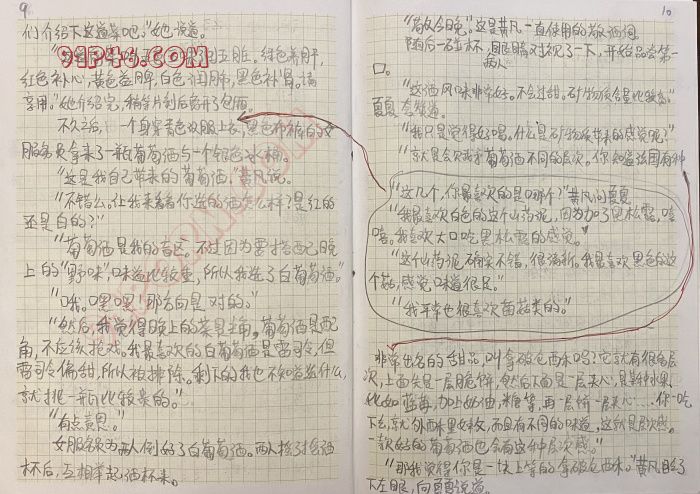 9
们介绍下这道菜吧。"她说道。
91P46.COM
红色补心,黄色益脾,白色润肺,黑色补肾。请
享用。"她介绍完,稍等片刻后离开了包厢。
不久之后,一个身穿
服务员拿来了一瓶葡萄酒与一个银色冰桶。
"这是我自己带来的葡萄酒。"黄凡说。
"不错么。让我来看看你选的酒怎么样?是红的
还是白的?"
"葡萄酒是我的盲区。不过因为要搭配晚
上的"野味",味道比较重,所以我选了白葡萄酒。"
"哦。嘿嘿!那方向是对的。"
"然后,我觉得晚上的菜是主角。葡萄酒是配
角,不应该抢戏。我最喜欢的白葡萄酒是雷司令,但
雷司令偏甜,所以被排除。剩下的我也不知道选什么,
就挑一瓶比较贵的。"
"有点意思。"
女服务员为两人倒好了白葡萄酒。两人
杯后,互相举起酒杯来。
10
"敬今晚。"这是黄凡一直使用的敬酒词。
随后一碰杯,眼睛对视了一下,开始品尝第一
两人
口。
"这酒风味非常好。不会过甜。矿物质含量也较高。"
夏夏夸赞道。
"我只是觉得好喝。什么是矿物质带来的感觉呢?"
"就是会
葡萄酒不同的层次。你知道法国有种
"这几个,你最喜欢的是哪个?"黄凡问夏夏
"我最喜欢白色的这个山药泥,因为加了黑松露,嘻
嘻。我喜欢大口吃黑松露的感觉。"
"这个山药泥确实不错,很清新。我最喜欢黑色的这
个菇,感觉味道很足。"
"我平常也很喜欢菌菇类的。"
非常出名的甜品,叫拿破仑西米吗?它就有很多层
次,上面先是一层脆饼,然后下面是一层夹心,是新鲜水果,
比如蓝莓,加上奶油,糖等,再一层饼一层夹心……你一吃
下去,就
而且有不同的味道,这就是层次感。
一款好的葡萄酒也会有这种层次感。"
"那我觉得你是一块上等的拿破仑西米。"黄凡眨了
下左眼,向夏夏说道。